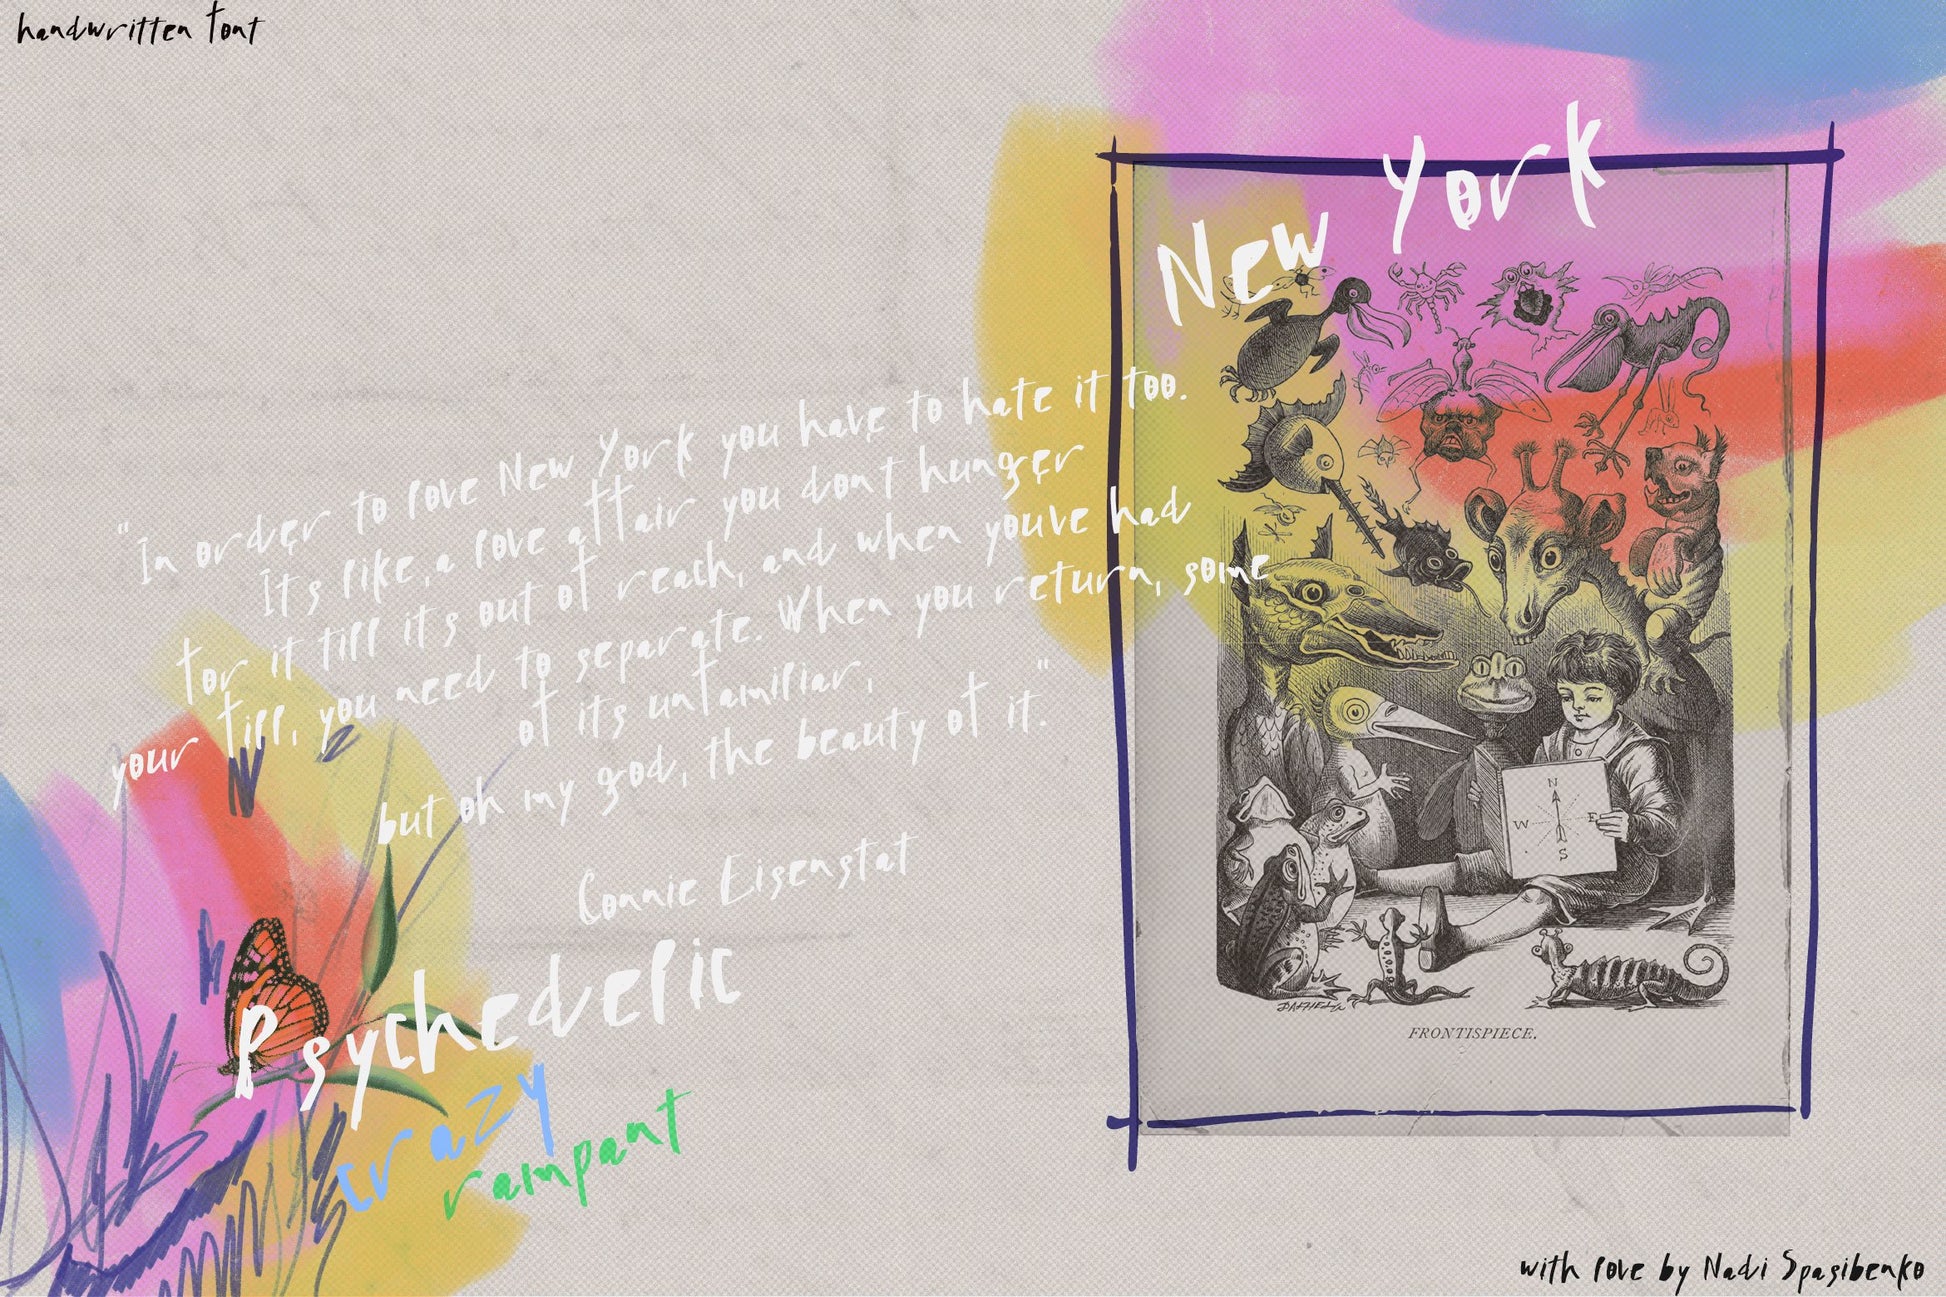 handwritten font
New York
"In order to love New York you have to hate it too.
It's like, a love affair you dont hunger
for it till it's out of reach, and when youve had
your fill, you need to separate. When you return, some
of its unfamiliar,
but oh my god, the beauty of it."
Connie Eisenstat
Psychedelic
crazy
rampant
N
W E
S
DALZIEL
FRONTISPIECE.
with love by Nadi Spasibenko